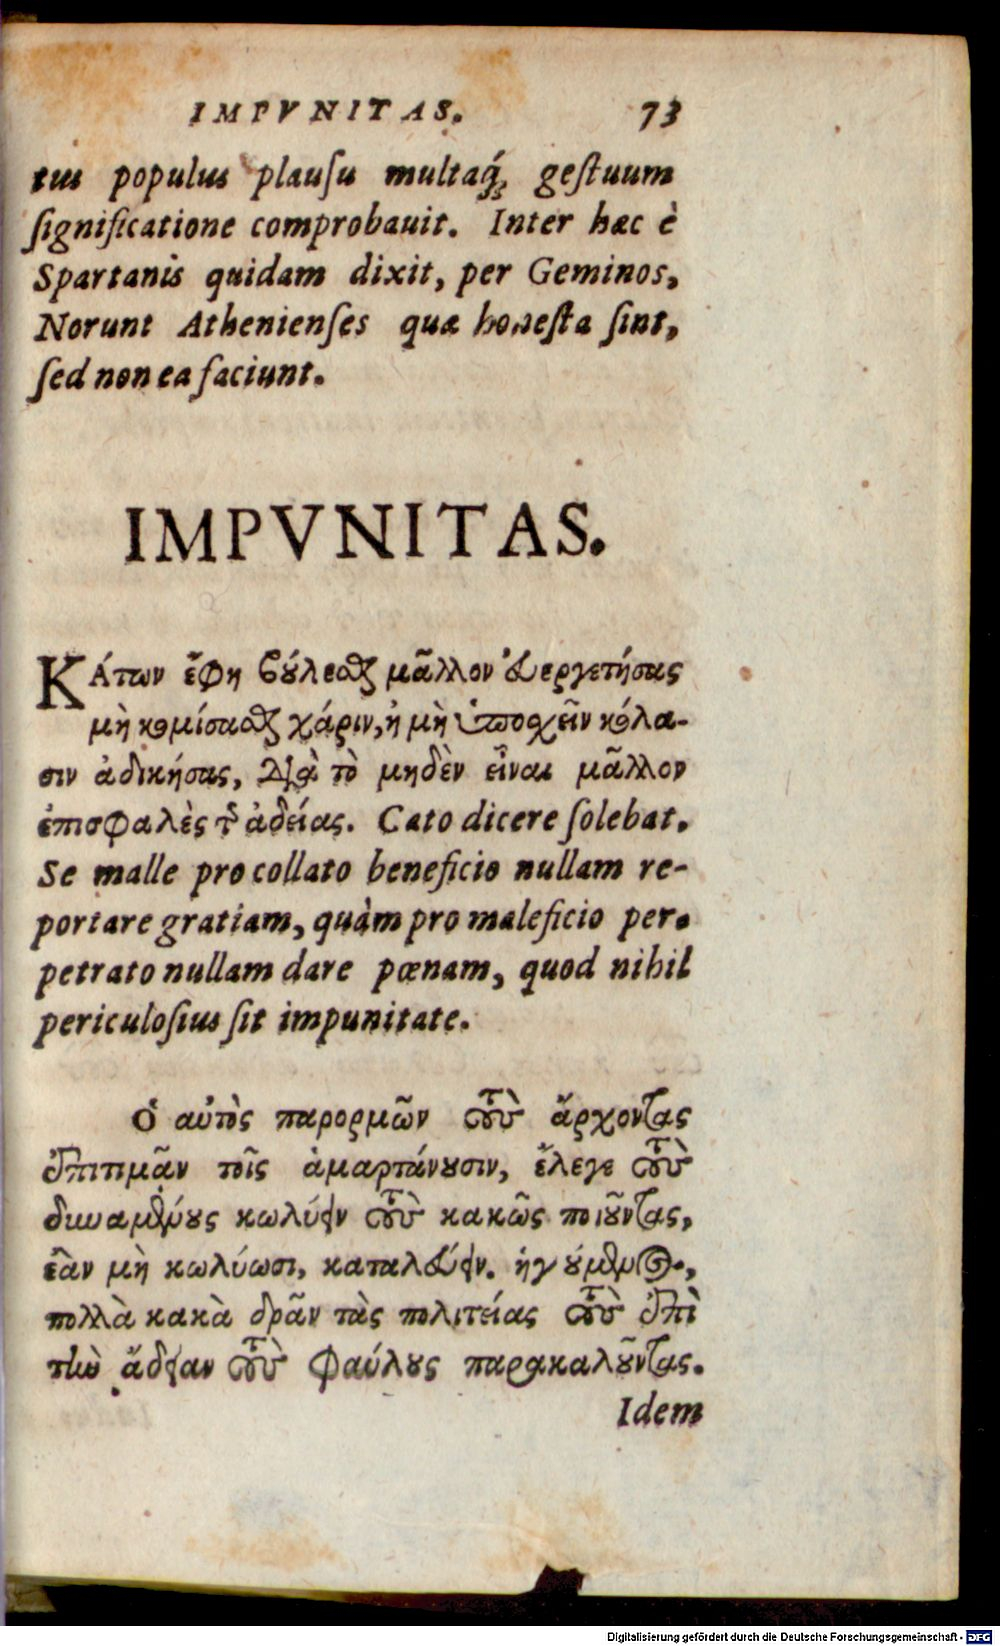 IMPVNITAS. 73
tus populus plausu multaq́; gestuum
significatione comprobauit. Inter hæc è
Spartanis quidam dixit, per Geminos,
Norunt Athenienses quæ honesta sint,
sed non ea faciunt.
IMPVNITAS.
ΚΆτων ἔφη βούλεσθαι μᾶλλον εὐεργετήσας
μὴ κομίσασθαι χάριν, ἢ μὴ ὑποσχεῖν κόλα-
σιν ἀδικήσας, διὰ τὸ μηδὲν εἶναι μᾶλλον
ἐπισφαλὲς τῆς ἀδείας. Cato dicere solebat.
Se malle pro collato beneficio nullam re-
portare gratiam, quàm pro maleficio per-
petrato nullam dare pœnam, quod nihil
periculosius sit impunitate.
Ὁ αὐτὸς παρορμῶν τοὺς ἄρχοντας
ἐπιτιμᾶν τοῖς ἁμαρτάνουσιν, ἔλεγε τοὺς
δυναμένους κωλύειν τοὺς κακῶς ποιοῦντας,
ἐὰν μὴ κωλύωσι, καταλεύειν. ἡγούμενος,
πολλὰ κακὰ δρᾶν τὰς πολιτείας τοὺς ἐπὶ
τὴν ἄδειαν τοὺς φαύλους παρακαλοῦντας.
Idem
Digitalisierung gefördert durch die Deutsche Forschungsgemeinschaft - DFG